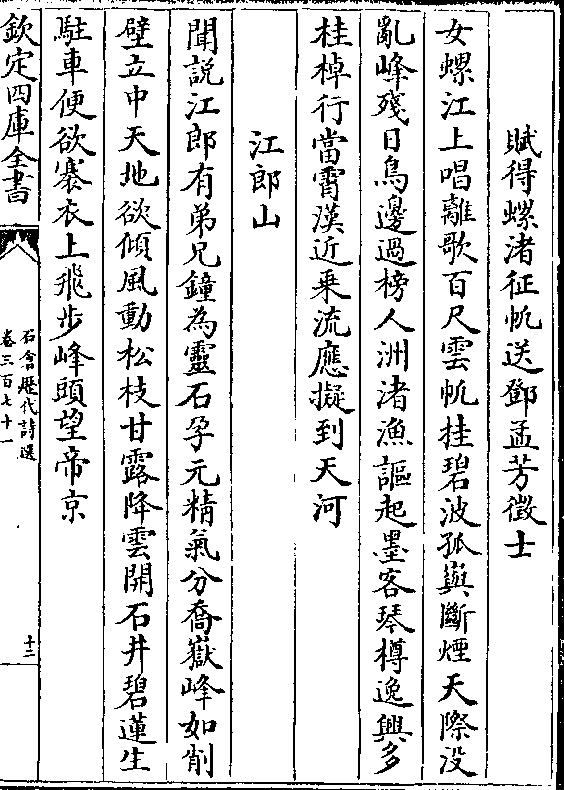 賦得螺渚征帆送鄧孟芳徵士
女螺江上唱離歌百尺雲帆挂碧波孤嶼斷煙天際没
亂峰殘日鳥邊過榜人洲渚漁謳起墨客琴樽逸興多
桂棹行當霄漢近乗流應擬到天河
江郎山
聞説江郎有弟兄鐘為靈石孕元精氣分喬嶽峰如削
壁立中天地欲傾風動松枝甘露降雲開石井碧蓮生
駐車便欲褰衣上飛步峰頭望帝京
欽定四庫全書
石倉歴代詩選
卷三百七十一
十三